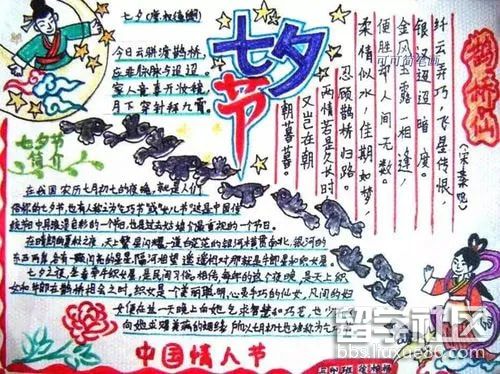 七夕节
七夕(唐权德舆)
今日云骈渡鹊桥,
应非脉脉与迢迢。
家人竞喜开妆镜,
月下穿针拜九宵。
鹊桥仙
(宋秦观)
纤云弄巧,飞星传恨,
银汉迢迢暗度。
金风玉露一相逢,
便胜却人间无数。
柔情似水,佳期如梦,
忍顾鹊桥归路。
两情若是久长时
又岂在朝
朝暮暮。
可可简笔画
七夕节
简介
在我国,农历七月初七的夜晚,就是人们
俗称的七夕节,也有人称之为"乞巧节"或"女儿节"这是中国传
统节日中最具浪漫色彩的一个节日,也是过去姑娘们最重视的一个节日。
在晴朗的夏秋之夜,天上繁星闪耀,一道白茫茫的银河横贯南北,银河的
东西两岸,各有一颗闪亮的星星,隔河相望,遥遥相对,那就是牵牛星和织女星。
七夕之夜,坐看牵牛织女星,是民间习俗,相传,每年的这个夜晚,是天上织
女和牛郎在鹊桥相会之时,织女是一个美丽聪明,心灵手巧的仙女,凡间的妇
女便在这一天晚上向她乞求智慧和巧艺,也少
向她求赐美满的姻缘,所以七月初七也被称为乞巧
中国情人节
留学社区
bbs.liuxue86.com